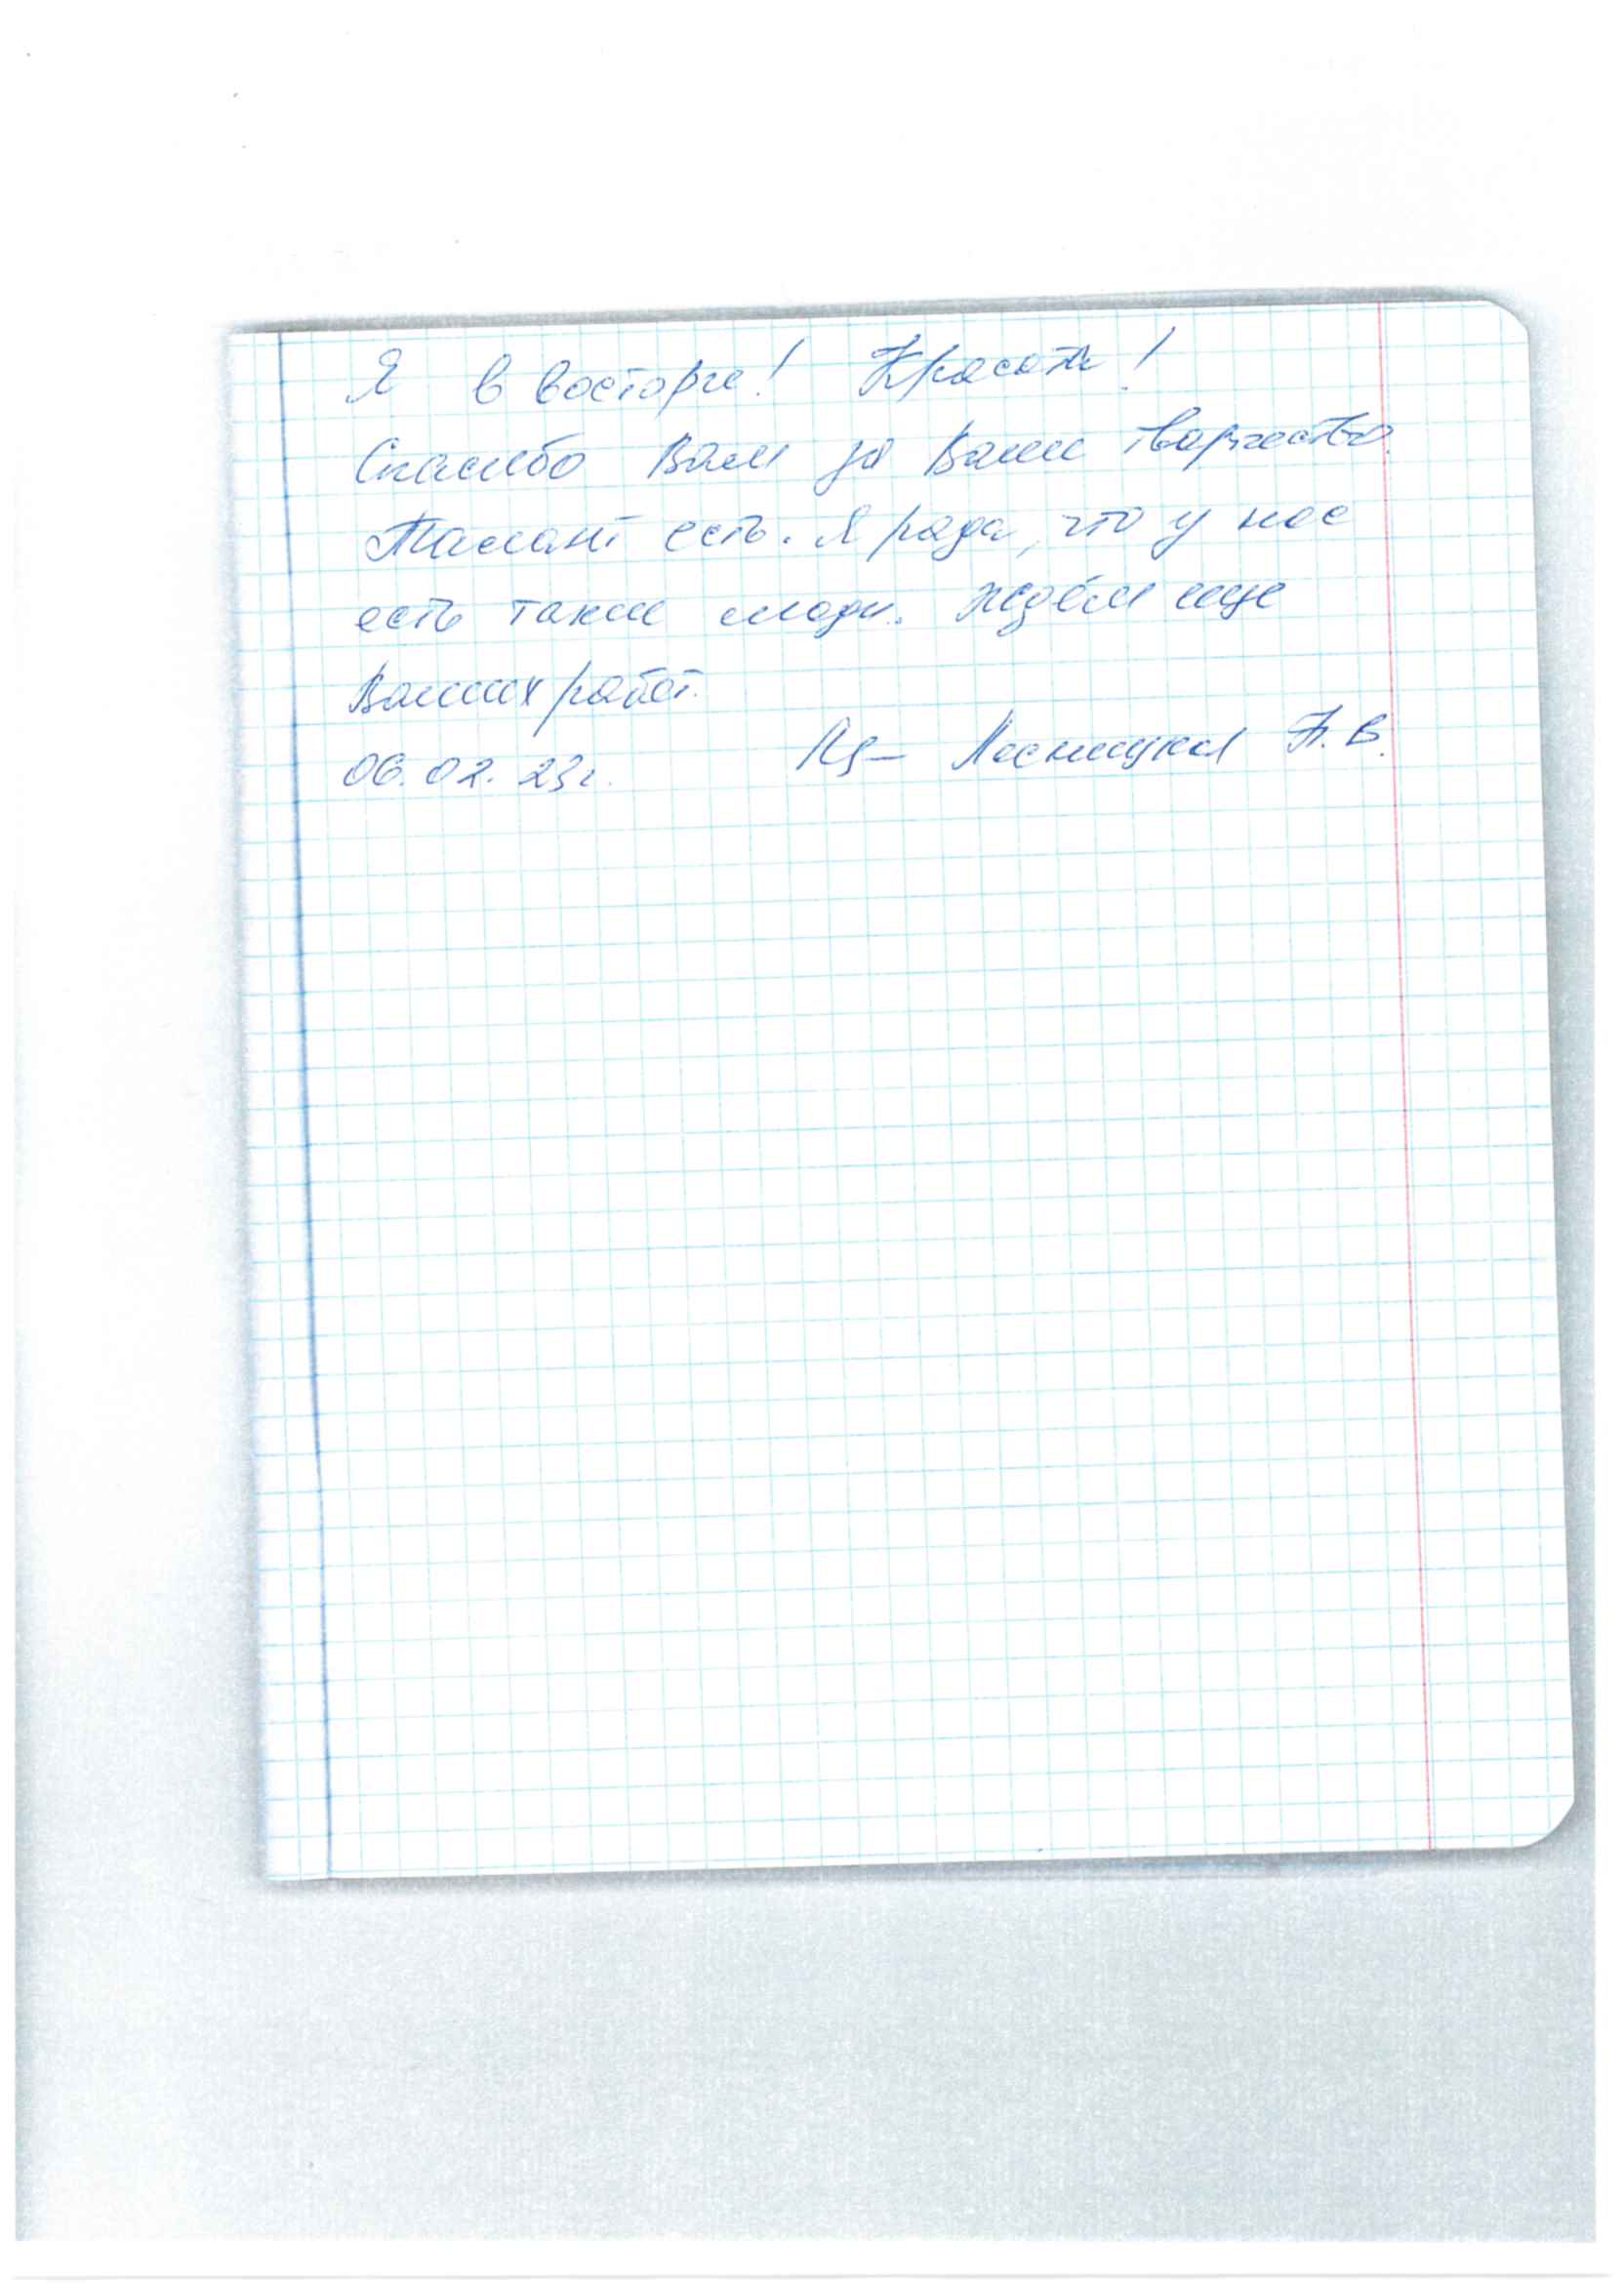 Я в восторге! Красота!
Спасибо Вам за Ваше творчество.
Талант есть. Я рада, что у нас
есть такие люди. Ждём еще
Ваших работ.
06.02.23г. В.